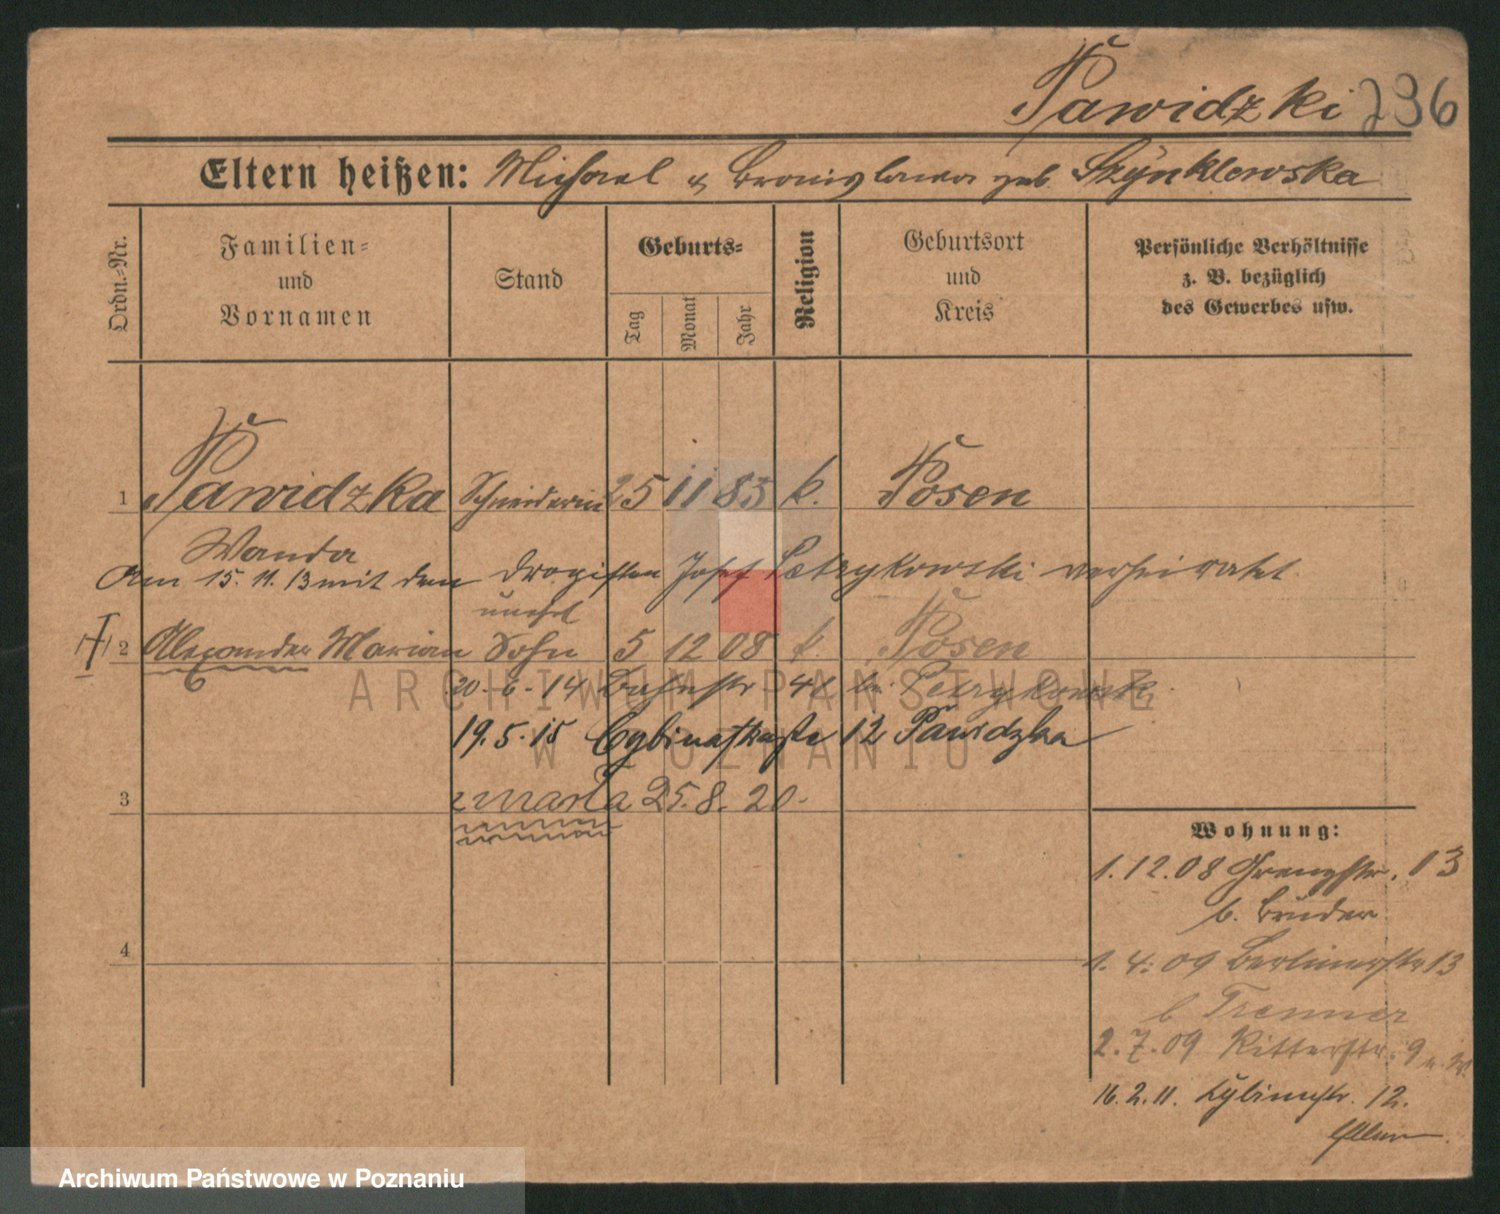 Pawidzki 236
Eltern heißen: Michael u Bronislawa geb. Szynklewska
Ordn.-Nr.
Familien- und Vornamen
Stand
Geburts-
Tag
Monat
Jahr
Religion
Geburtsort und Kreis
Persönliche Verhältnisse z. B. bezüglich des Gewerbes usw.
1 Pawidzka Schneiderin 25 11 83 k. Posen
Wanda
Am 15. 11. 13 mit dem Drogisten Josef Petrykowski verheiratet.
unehel
2 Alexander Marian Sohn 5 12 08 k. Posen
20. 6. 14 Bahnstr 41 bei Petrykowski.
19. 5. 15 Cybinastraße 12 Pawidzka
3 zmarła 25. 8. 20.
4
Wohnung:
1. 12. 08 Grenzstr. 13
b. Bruder
1. 4. 09 Berlinerstr 13
b Tremmer
2. 7. 09 Ritterstr. 9
16. 2. 11. Cybinastr. 12.
Eltern
ARCHIWUM PAŃSTWOWE
W POZNANIU
Archiwum Państwowe w Poznaniu